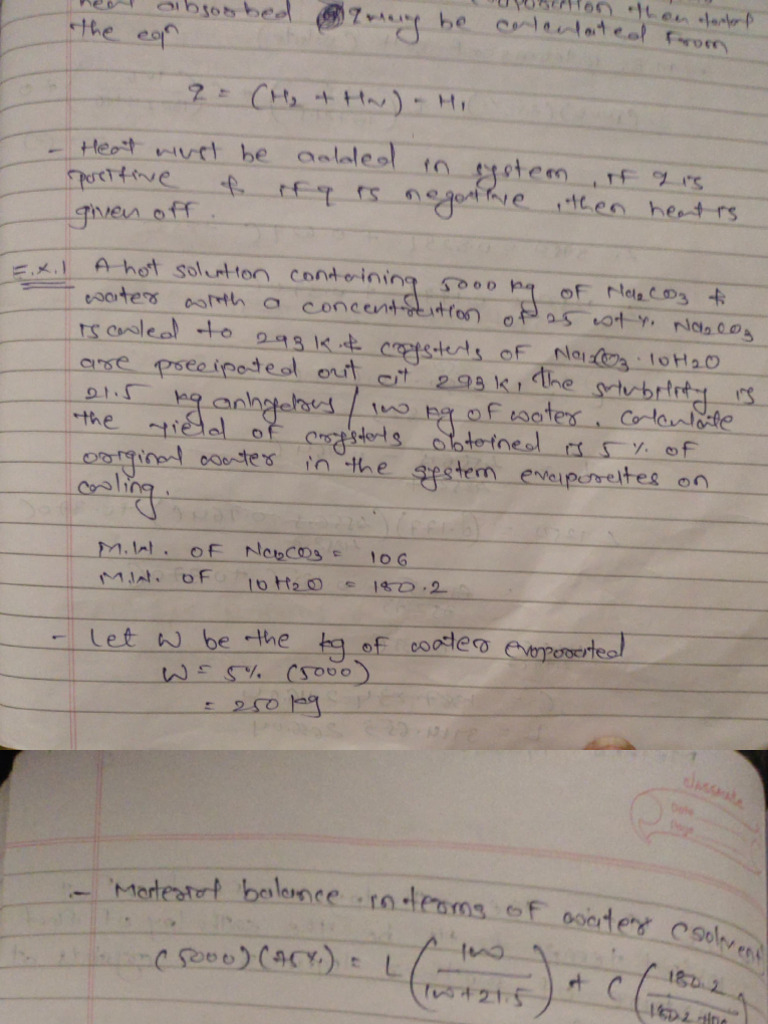 heat absorbed q may be calculated from
the eqn
q = (H2 + Hv) - H1
- Heat must be added in system, if q is
positive & if q is negative, then heat is
given off.
E.x.1 A hot solution containing 5000 kg of Na2CO3 &
water with a concentration of 25 wt% Na2CO3
is cooled to 293 K & crystals of Na2CO3.10H2O
are precipated out at 293 K, the solubility is
21.5 kg anhydrous / 100 kg of water. calculate
the yield of crystals obtained is 5 % of
original water in the system evaporates on
cooling.
M.W. OF Na2CO3 = 106
M.W. OF 10H2O = 180.2
- Let W be the kg of water evaporated
W = 5% (5000)
= 250 kg
classmate
Date
Page
:- Material balance in terms of water (solvent
(5000)(75%) = L (100 / 100+21.5) + C (180.2 / 180.2+106)